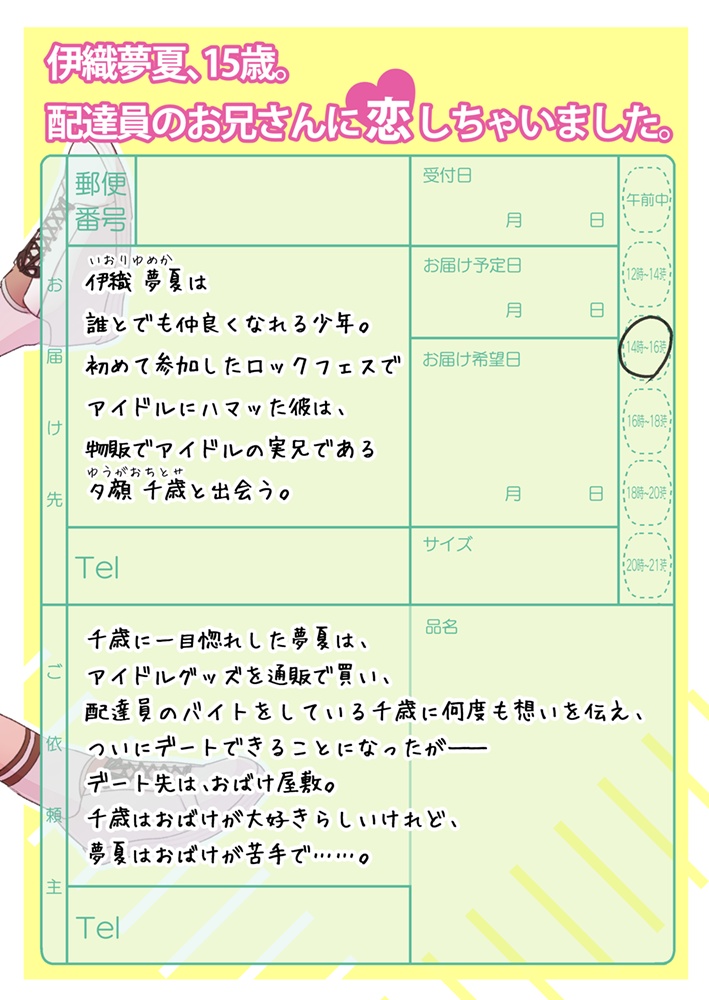 伊織夢夏、15歳。
配達員のお兄さんに恋しちゃいました。
郵便
番号
受付日
月 日
午前中
お届け先
いおりゆめか
伊織 夢夏は
誰とでも仲良くなれる少年。
初めて参加したロックフェスで
アイドルにハマッた彼は、
物販でアイドルの実兄である
ゆうがおちとせ
夕顔 千歳と出会う。
お届け予定日
月 日
お届け希望日
月 日
12時~14時
14時~16時
16時~18時
18時~20時
20時~21時
Tel
サイズ
ご依頼主
品名
千歳に一目惚れした夢夏は、
アイドルグッズを通販で買い、
配達員のバイトをしている千歳に何度も想いを伝え、
ついにデートできることになったが――
デート先は、おばけ屋敷。
千歳はおばけが大好きらしいけれど、
夢夏はおばけが苦手で……。
Tel